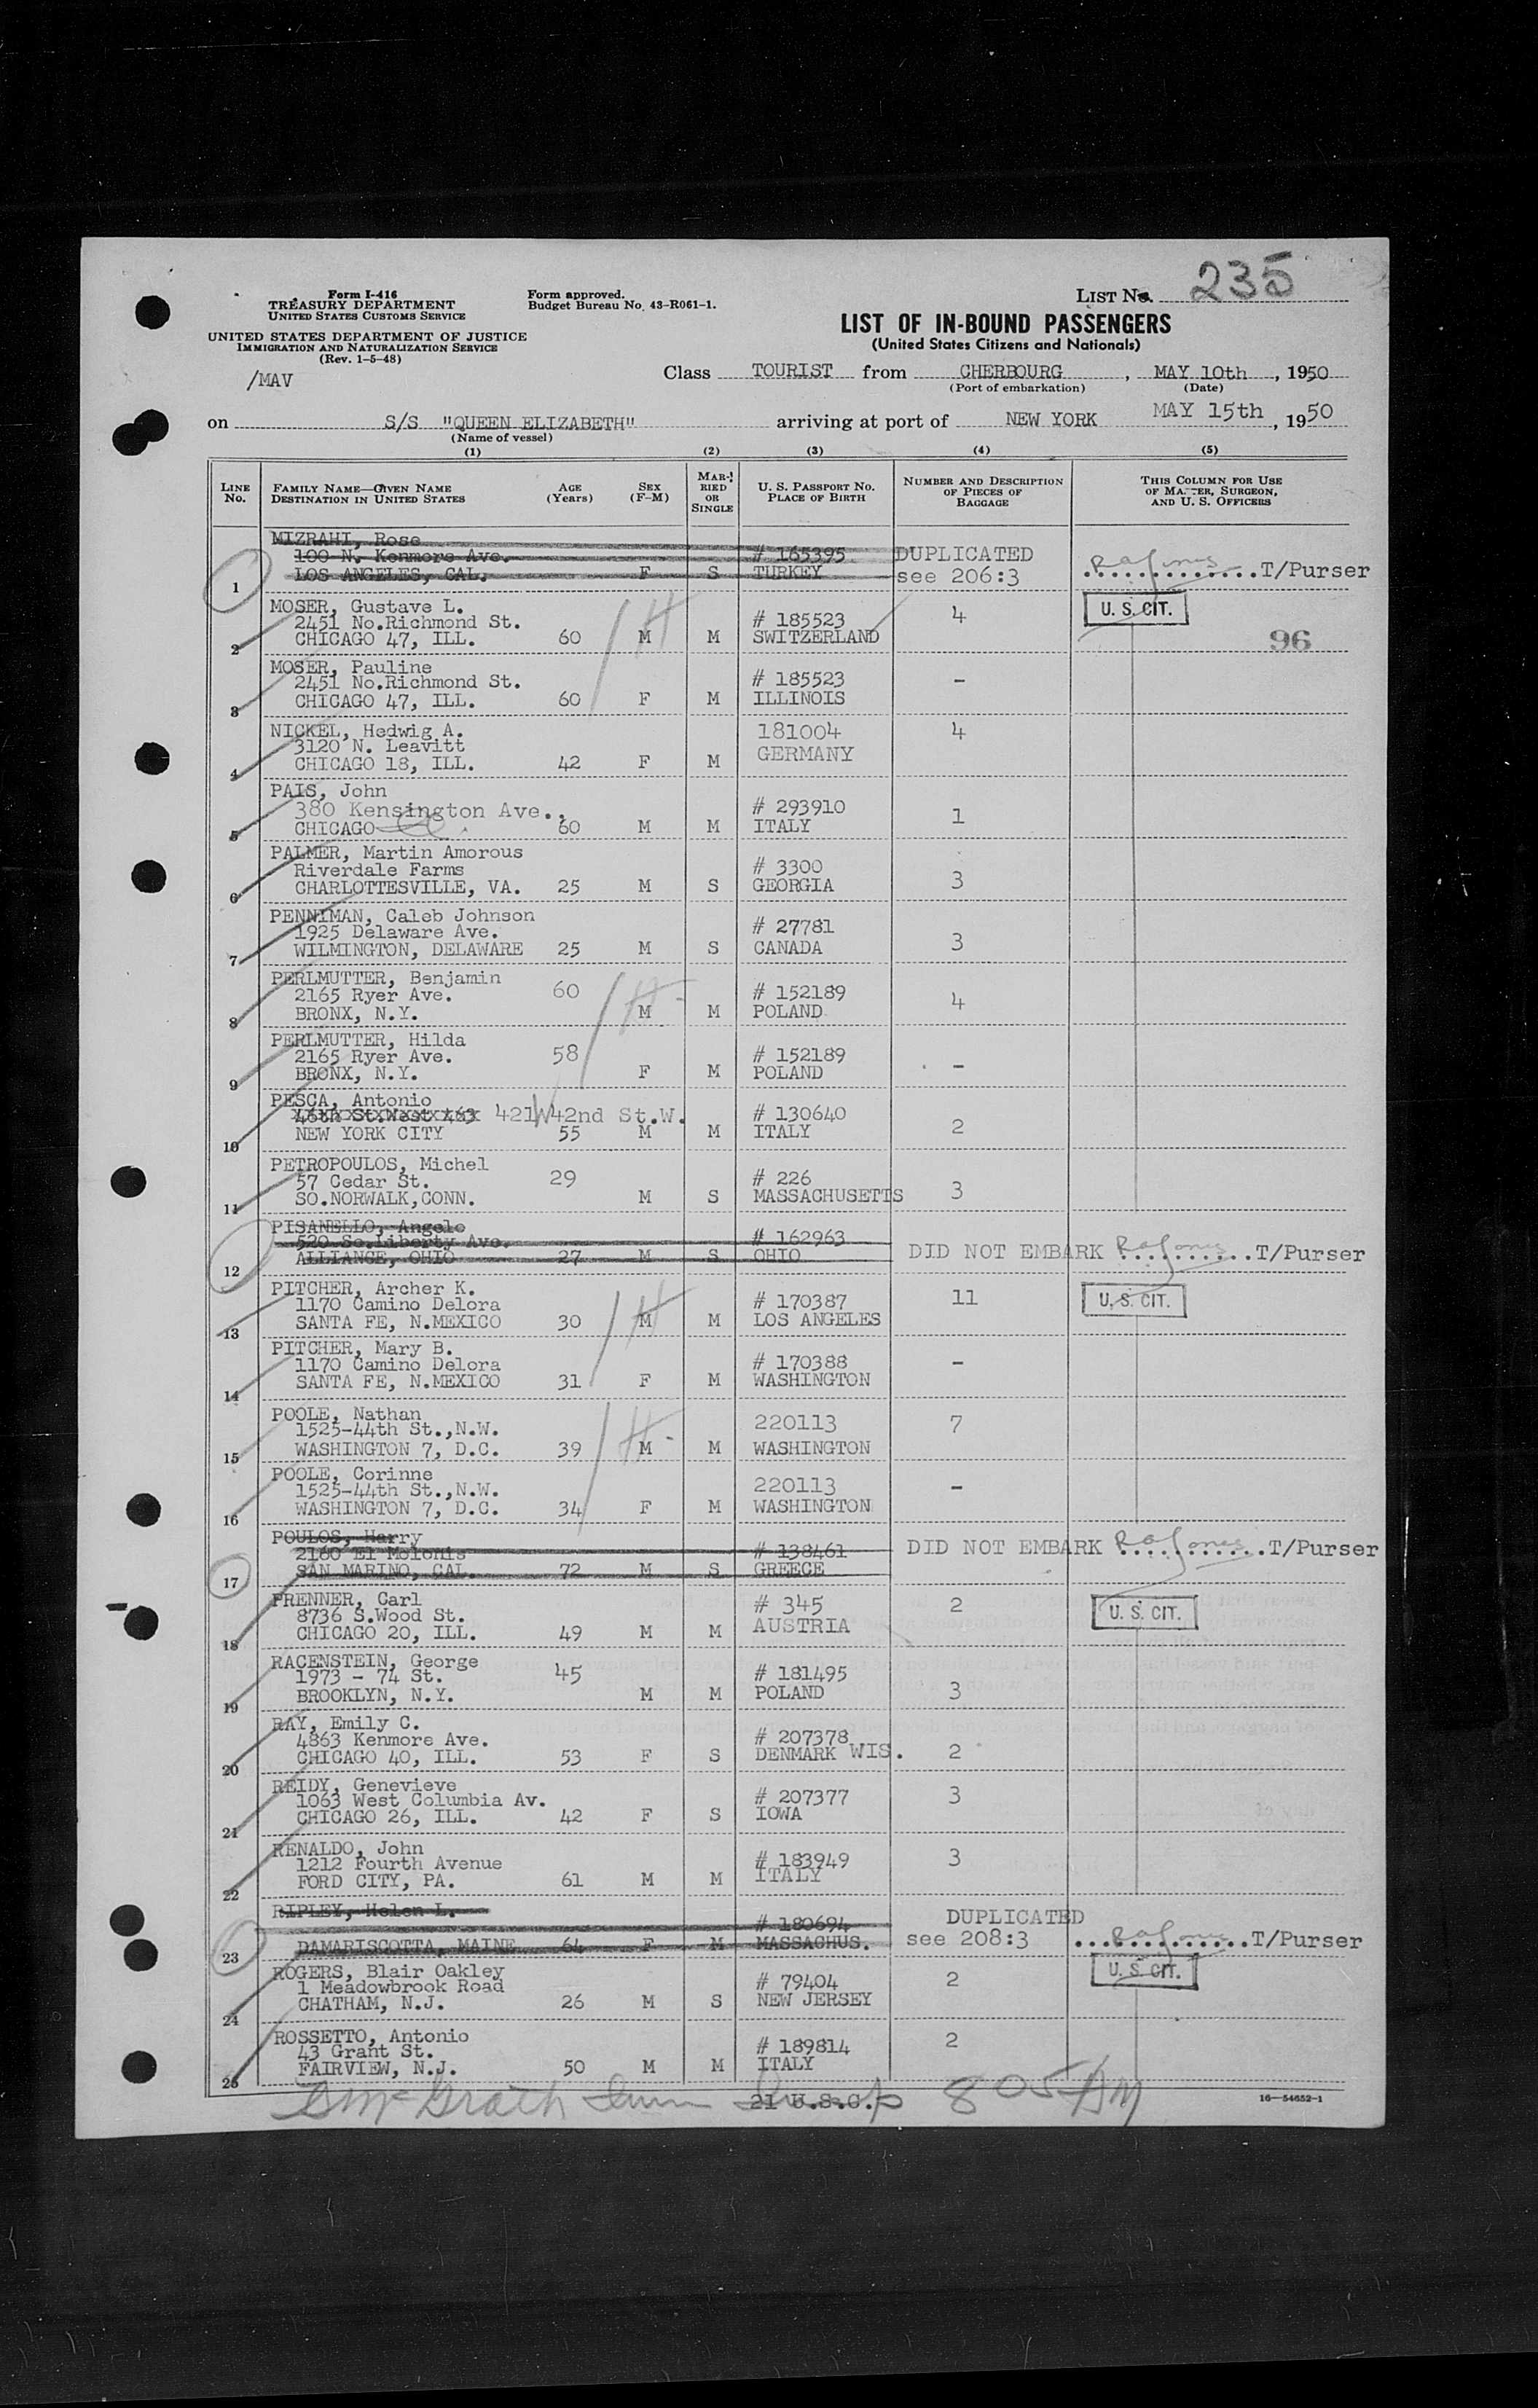 235
LIST No.
Form I-416
TREASURY DEPARTMENT
UNITED STATES CUSTOMS SERVICE
UNITED STATES DEPARTMENT OF JUSTICE
IMMIGRATION AND NATURALIZATION SERVICE
(Rev. 1-5-48)
/MAV
Form approved.
Budget Bureau No. 43-R061-1.
LIST OF IN-BOUND PASSENGERS
(United States Citizens and Nationals)
Class TOURIST from CHERBOURG, MAY 10th, 1950
(Port of embarkation) (Date)
on S/S "QUEEN ELIZABETH" arriving at port of NEW YORK MAY 15th, 1950
(Name of vessel)
(1) (2) (3) (4) (5)
LINE No. FAMILY NAME—GIVEN NAME DESTINATION IN UNITED STATES AGE (Years) SEX (F-M) MARRIED OR SINGLE U. S. PASSPORT No. PLACE OF BIRTH NUMBER AND DESCRIPTION OF PIECES OF BAGGAGE THIS COLUMN FOR USE OF MASTER, SURGEON, AND U. S. OFFICERS
MIZRAHI, Rose
100 N. Kenmore Ave. # 165395 DUPLICATED
1 LOS ANGELES, CAL. F S TURKEY see 206:3 T/Purser
MOSER, Gustave L. U. S. CIT.
2451 No.Richmond St. # 185523 4
2 CHICAGO 47, ILL. 60 M M SWITZERLAND 96
MOSER, Pauline
2451 No.Richmond St. # 185523 -
3 CHICAGO 47, ILL. 60 F M ILLINOIS
NICKEL, Hedwig A. 181004 4
3120 N. Leavitt GERMANY
4 CHICAGO 18, ILL. 42 F M
PAIS, John
380 Kensington Ave., # 293910 1
5 CHICAGO 60 M M ITALY
PALMER, Martin Amorous
Riverdale Farms # 3300 3
6 CHARLOTTESVILLE, VA. 25 M S GEORGIA
PENNIMAN, Caleb Johnson
1925 Delaware Ave. # 27781 3
7 WILMINGTON, DELAWARE 25 M S CANADA
PERLMUTTER, Benjamin 60
2165 Ryer Ave. # 152189 4
8 BRONX, N.Y. M M POLAND
PERLMUTTER, Hilda 58
2165 Ryer Ave. # 152189 -
9 BRONX, N.Y. F M POLAND
PESCA, Antonio
46th St.West 463 421W 42nd St.W. # 130640 2
10 NEW YORK CITY 55 M M ITALY
PETROPOULOS, Michel 29
57 Cedar St. # 226 3
11 SO.NORWALK,CONN. M S MASSACHUSETTS
PISANELLO, Angelo
520 So.Liberty Ave. # 162963
12 ALLIANCE, OHIO 27 M S OHIO DID NOT EMBARK T/Purser
PITCHER, Archer K. 11 U. S. CIT.
1170 Camino Delora # 170387
13 SANTA FE, N.MEXICO 30 M M LOS ANGELES
PITCHER, Mary B.
1170 Camino Delora # 170388 -
14 SANTA FE, N.MEXICO 31 F M WASHINGTON
POOLE, Nathan 220113 7
1525-44th St.,N.W.
15 WASHINGTON 7, D.C. 39 M M WASHINGTON
POOLE, Corinne 220113 -
1525-44th St.,N.W.
16 WASHINGTON 7, D.C. 34 F M WASHINGTON
POULOS, Harry
2160 El Molonis # 138461 DID NOT EMBARK T/Purser
17 SAN MARINO, CAL. 72 M S GREECE
PRENNER, Carl # 345 2 U. S. CIT.
8736 S.Wood St. AUSTRIA
18 CHICAGO 20, ILL. 49 M M
RACENSTEIN, George 45
1973 - 74 St. # 181495
19 BROOKLYN, N.Y. M M POLAND 3
RAY, Emily C.
4863 Kenmore Ave. # 207378
20 CHICAGO 40, ILL. 53 F S DENMARK WIS. 2
REIDY, Genevieve
1063 West Columbia Av. # 207377 3
21 CHICAGO 26, ILL. 42 F S IOWA
RENALDO, John
1212 Fourth Avenue # 183949 3
22 FORD CITY, PA. 61 M M ITALY
RIPLEY, Helen L.
# 180694 DUPLICATED
23 DAMARISCOTTA, MAINE 64 F M MASSACHUS. see 208:3 T/Purser
ROGERS, Blair Oakley U. S. CIT.
1 Meadowbrook Road # 79404 2
24 CHATHAM, N.J. 26 M S NEW JERSEY
ROSSETTO, Antonio
43 Grant St. # 189814 2
25 FAIRVIEW, N.J. 50 M M ITALY
21 U.S.C. 805 AM
16—54652-1